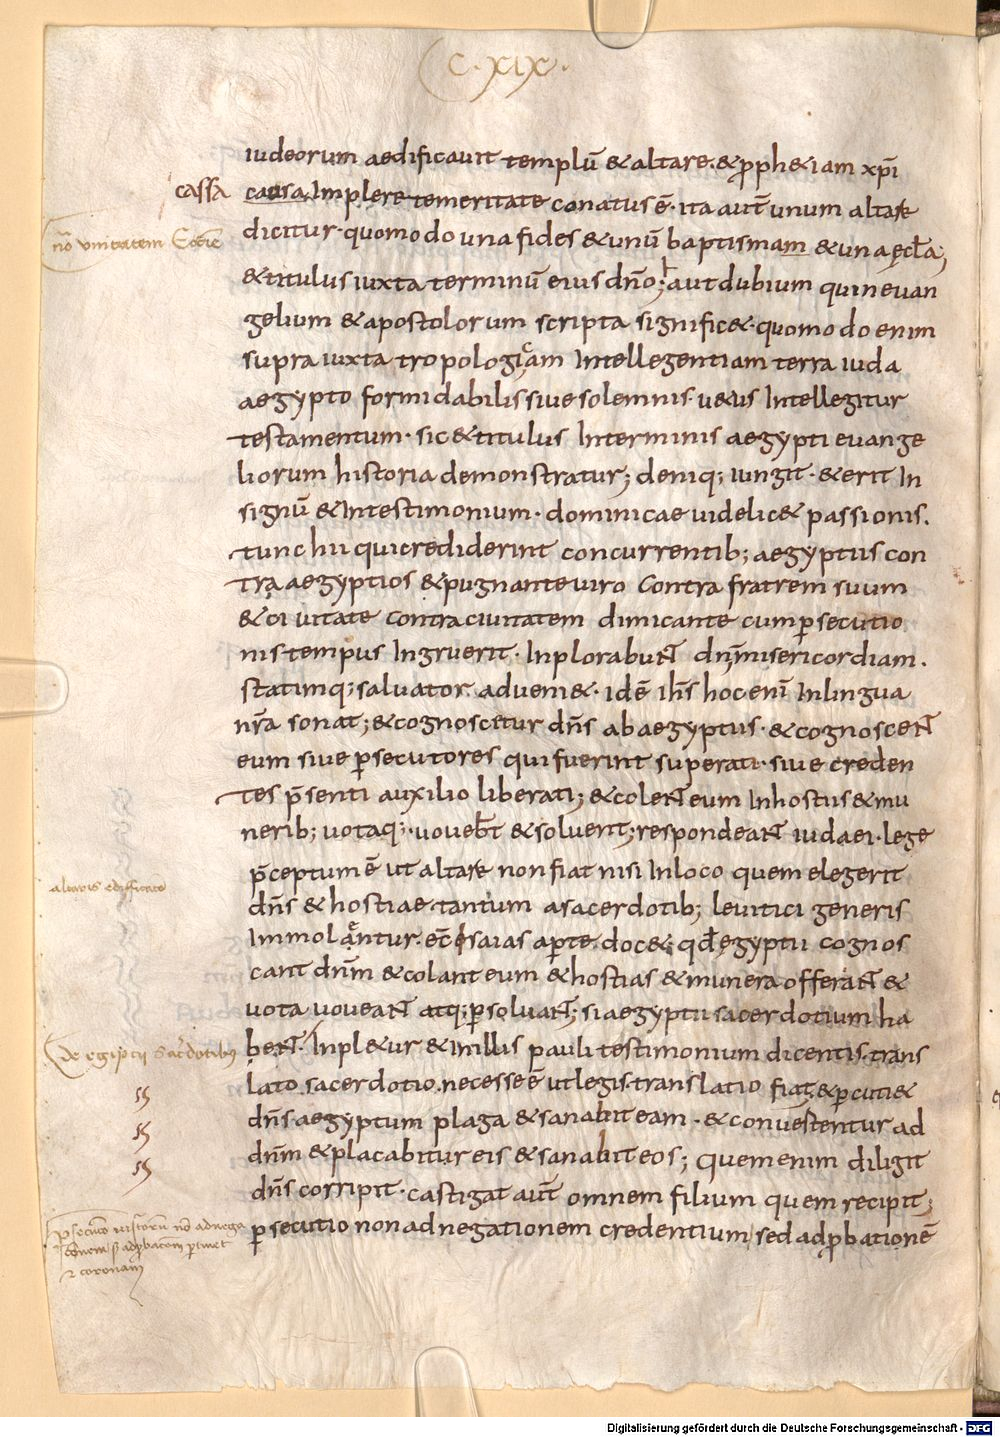 C·XIX·
iudeorum aedificauit templū & altare. & ꝓph&iam xp̄i
cassa
causa, Implere temeritate conatus ē· ita aut̄ unum altare
nō vnitatem Eccīe
dicitur· quomodo una fides & unū baptismam & una ęcl̄a;
& titulus iuxta terminū eius dn̄o; aut dubium quin euan
gelium & apostolorum scripta signific&· quomodo enim
supra iuxta tropologiam Intellegentiam terra iuda
aegypto formidabilis siue solemnis· u&us Intellegitur
testamentum· sic & titulus In terminis aegypti euange
liorum historia demonstratur; deniq; iungit· & erit In
signū & In testimonium· dominicae uidelic& passionis.
tunc hii qui crediderint concurrentib; aegyptiis con
tra aegyptios & pugnante uiro contra fratrem suum
& ciuitate contra ciuitatem dimicante cum ꝑsecutio
nis tempus Ingruerit· Inplorabunt dn̄m misericordiam.
statimq; saluator adueni&· idē ih̄s hoc enī In lingua
nr̄a sonat; & cognoscetur dn̄s ab aegyptiis· & cognoscent
eum siue ꝑsecutores qui fuerint superati· siue creden
tes p̄senti auxilio liberati; & colent eum In hostiis & mu
nerib; uotaq; uouebt̄ & soluent; respondeant iudaei· lege
p̄ceptum ē ut altare non fiat nisi In loco quem elegerit
altaris edifficatio
dn̄s & hostiae tantum a sacerdotib; leuitici generis
Immolantur. & c̄ isaias aꝑte doc&; qd̄ ęgyptii cognos
cant dn̄m & colant eum & hostias & munera offerant &
uota uoueant atq; ꝑsoluant; si aegyptii sacerdotium ha
De egiptii sac̄dotibus
bent. Inpl&ur & In illis pauli testimonium dicentis· trans
lato sacerdotio. necesse ē ut legis translatio fiat, & ꝑcuti&
dn̄s aegyptum plaga & sanabit eam· & conuertentur ad
dn̄m & placabitur eis & sanabit eos; quem enim diligit
dn̄s corripit· castigat aut̄ omnem filium quem recipit;
ꝑsecutio non ad negationem credentium, sed ad ꝓbationē
& coronam
Digitalisierung gefördert durch die Deutsche Forschungsgemeinschaft - DFG